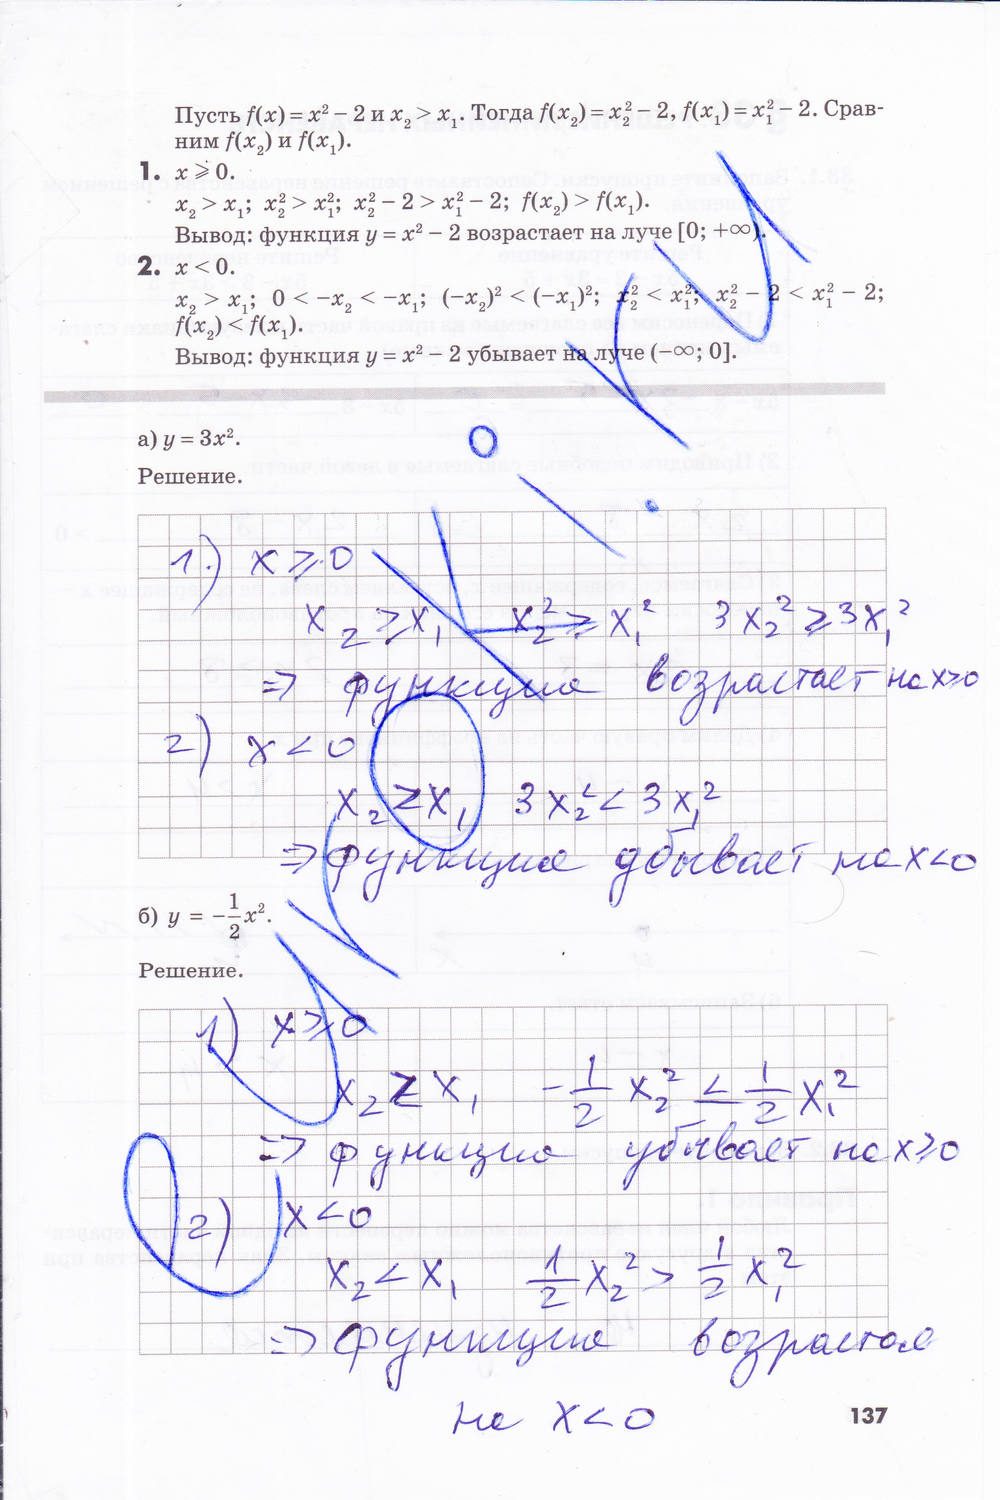 Пусть f(x) = x² − 2 и x₂ > x₁. Тогда f(x₂) = x₂² − 2, f(x₁) = x₁² − 2. Срав-
ним f(x₂) и f(x₁).
1. x ⩾ 0.
x₂ > x₁; x₂² > x₁²; x₂² − 2 > x₁² − 2; f(x₂) > f(x₁).
Вывод: функция y = x² − 2 возрастает на луче [0; +∞).
2. x < 0.
x₂ > x₁; 0 < −x₂ < −x₁; (−x₂)² < (−x₁)²; x₂² < x₁²; x₂² − 2 < x₁² − 2;
f(x₂) < f(x₁).
Вывод: функция y = x² − 2 убывает на луче (−∞; 0].
а) y = 3x².
Решение.
1.) x ⩾ 0
x₂ ⩾ x₁ x₂² ⩾ x₁² 3x₂² ⩾ 3x₁²
=> функция возрастает на x⩾0
2) x < 0
x₂ ⩾ x₁ 3x₂² < 3x₁²
=> функция убывает на x<0
б) y = −1/2 x².
Решение.
1) x ⩾ 0
x₂ ⩾ x₁ −1/2 x₂² ⩽ 1/2 x₁²
=> функция убывает на x⩾0
2) x < 0
x₂ < x₁ 1/2 x₂² > 1/2 x₁²
=> функция возрастае
на x < 0
137